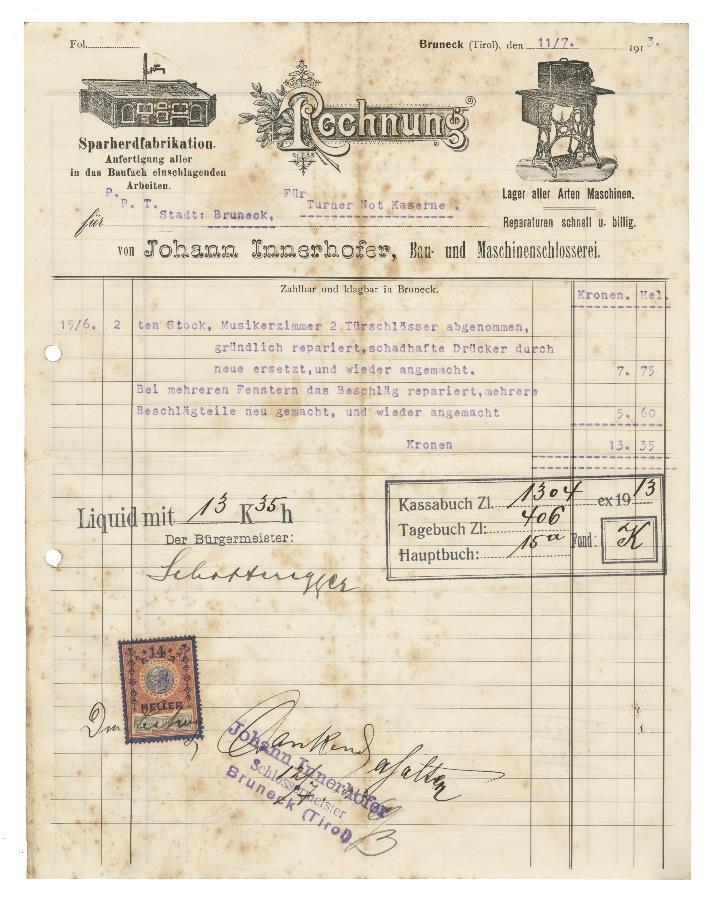 Fol.
Bruneck (Tirol), den 11/7. 1913.
Rechnung
Sparherdfabrikation.
Anfertigung aller
in das Baufach einschlagenden
Arbeiten.
Lager aller Arten Maschinen.
Reparaturen schnell u. billig.
P. P. T. Für Turner Not Kaserne.
für Stadt: Bruneck,
von Johann Innerhofer, Bau- und Maschinenschlosserei.
Zahlbar und klagbar in Bruneck.
Kronen. Hel.
15/6. 2 ten Stock, Musikerzimmer 2 Türschlösser abgenommen,
gründlich repariert,schadhafte Drücker durch
neue ersetzt,und wieder angemacht. 7. 75
Bei mehreren Fenstern das Beschläg repariert,mehrere
Beschlägteile neu gemacht, und wieder angemacht 5. 60
Kronen 13. 35
Liquid mit 13 K 35 h
Der Bürgermeister:
Kassabuch Zl. 1304 ex 1913
Tagebuch Zl: 406
Hauptbuch: 15a Fond: K
14
HELLER
Dankend erhalten
12/7
Johann Innerhofer
Schlossermeister
Bruneck (Tirol)